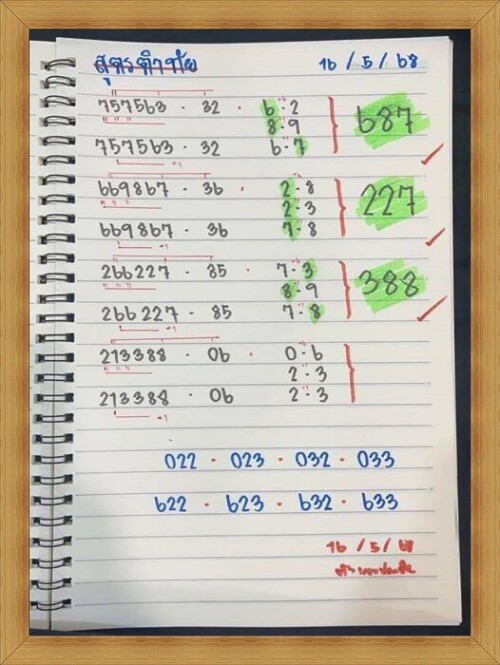 สูตรคำชัย 16 / 5 / 68
757563 · 32 6 · 2
8 · 9 687
757563 · 32 6 · 7
669867 · 36 · 2 · 8
2 · 3 227
669867 · 36 7 · 8
266227 · 85 · 7 · 3
8 · 9 388
266227 · 85 7 · 8
213388 · 06 · 0 · 6
2 · 3
213388 · 06 2 · 3
022 · 023 · 032 · 033
622 · 623 · 632 · 633
16 / 5 / 68